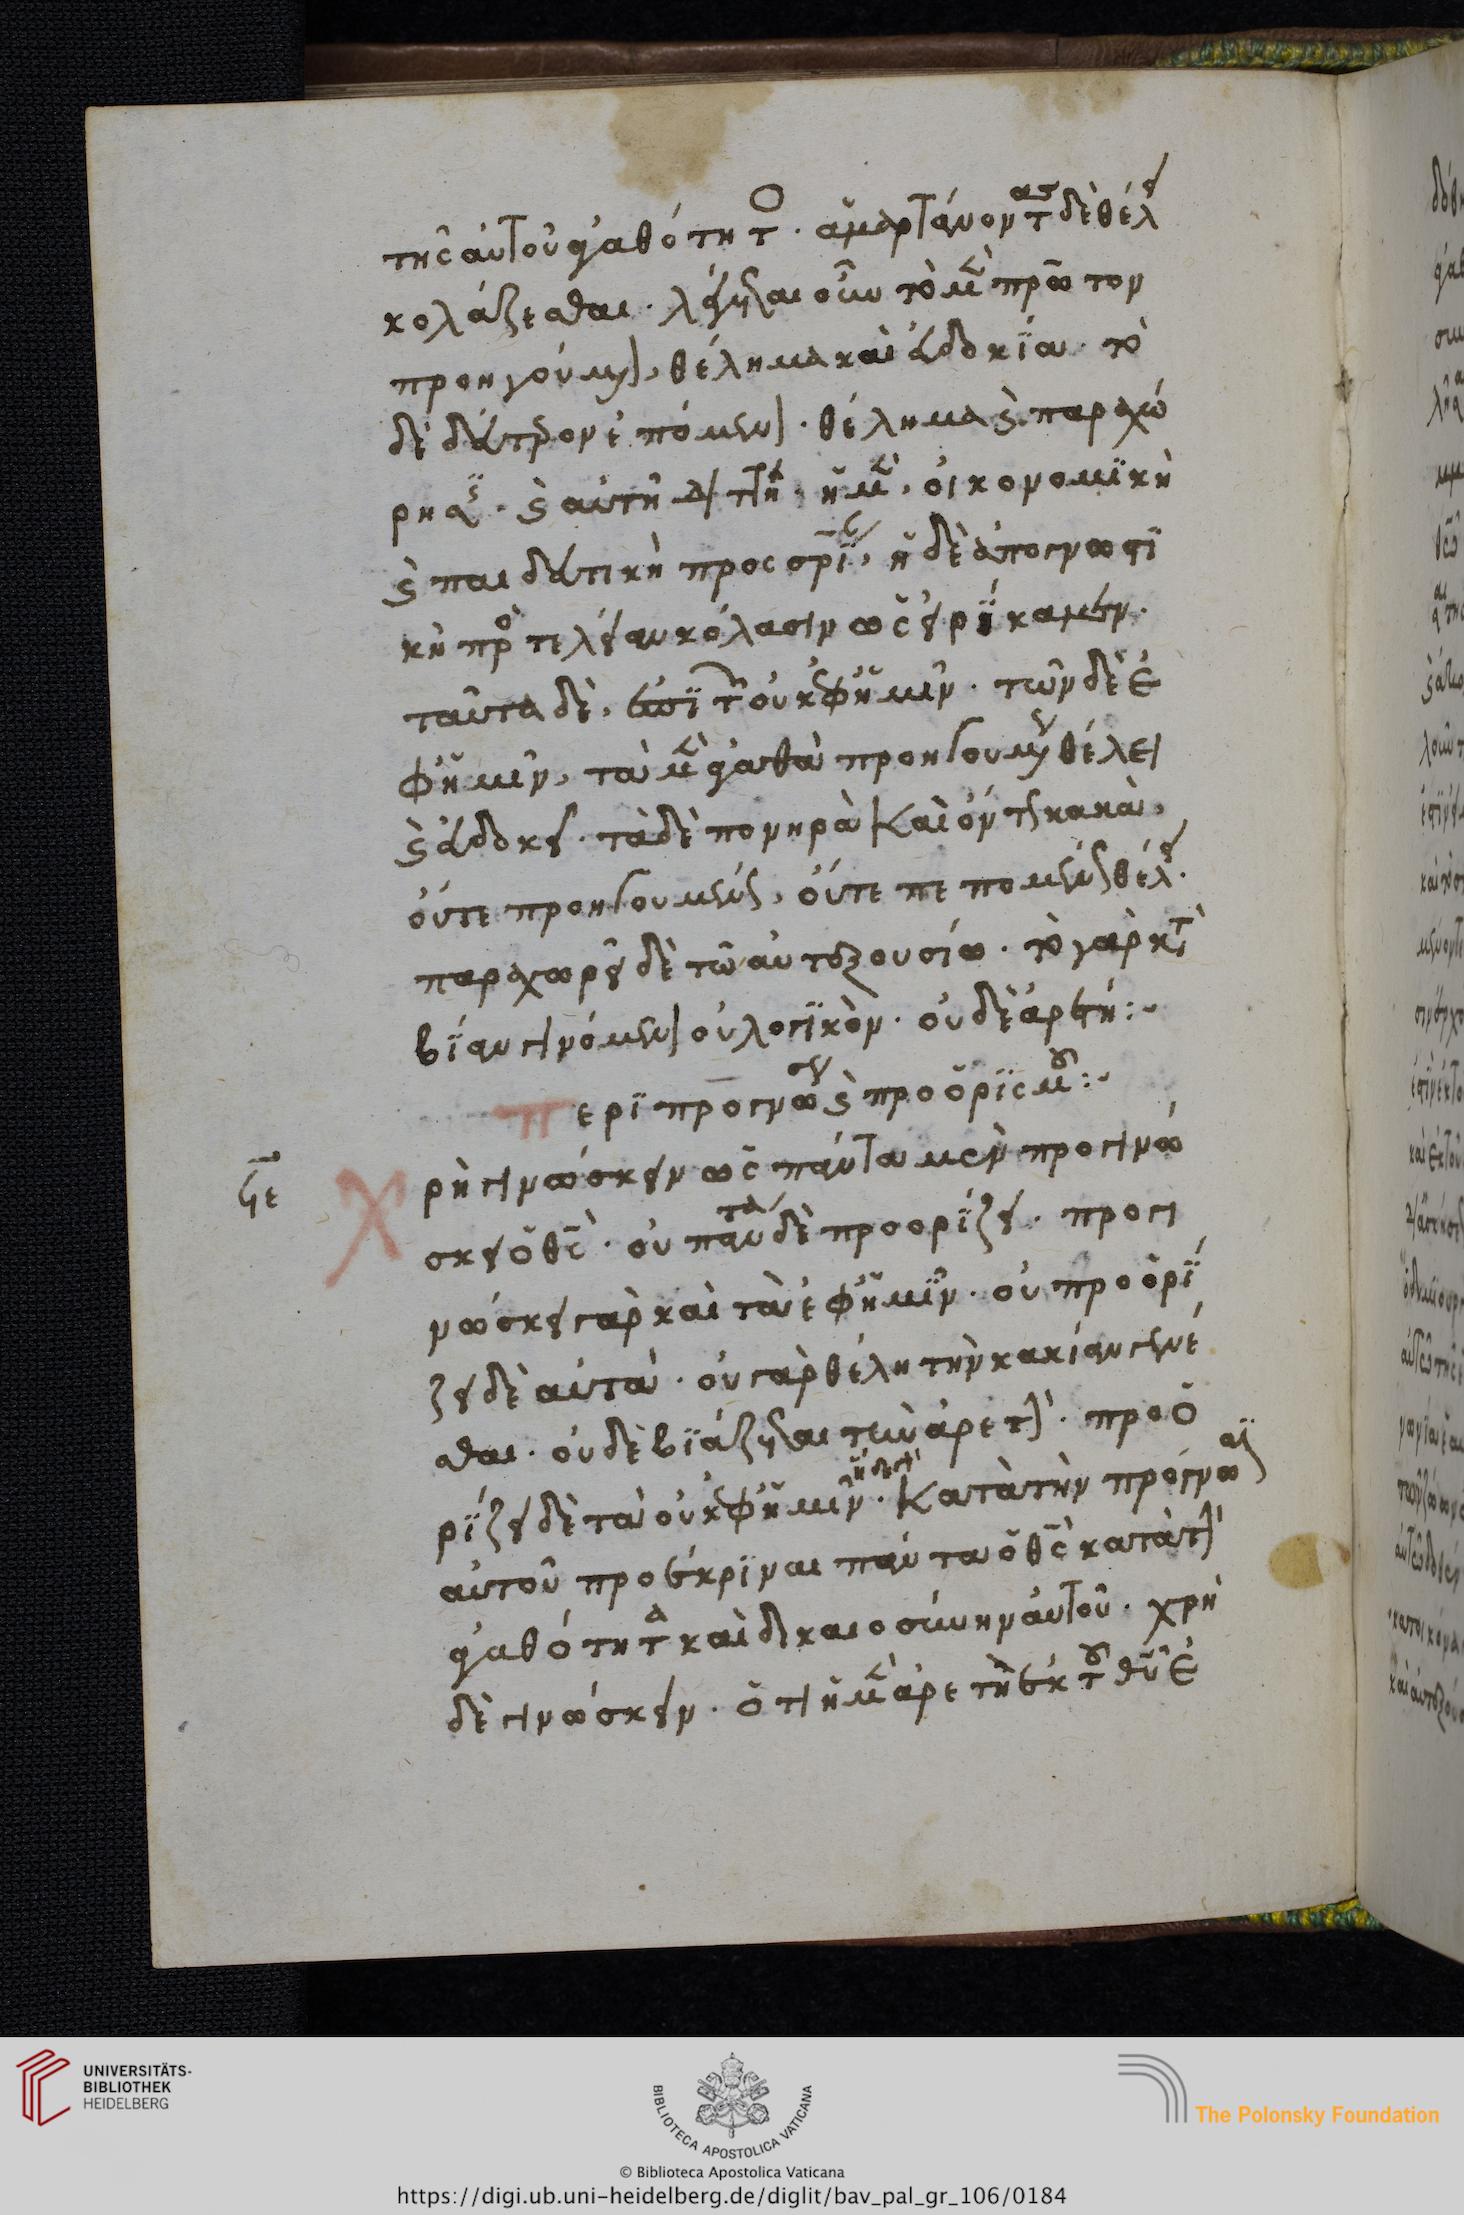 της αὐτοῦ ἀγαθότητος · ἁμαρτάνοντας δὲ θέλει
κολάζεσθαι · λέγεται οὖν τὸ μὲν πρῶτον
προηγούμενον, θέλημα καὶ εὐδοκία · τὸ
δὲ δεύτερον ἑπόμενον · θέλημα καὶ παραχώ
ρησις · καὶ αὐτὴ διττὴ · ἡ μὲν, οἰκονομϊκὴ
καὶ παιδευτικὴ προς σρϊαν, ἡ δὲ ἀπογνωστϊ
κὴ πρὸς τελείαν κόλασιν ὡς εἰρϊκαμεν ·
ταῦτα δὲ, ἐπϊ τῶν οὐκ ἐφ ἡμῖν · τῶν δὲ ἐ
φ ἡμῖν, τὰ μὲν ἀγαθὰ προηγουμένως θέλει
καὶ εὐδοκεῖ · τὰ δὲ πονηρὰ καὶ ὄντως κακὰ,
οὔτε προηγουμένως, οὔτε ἑπομένως θέλει ·
παραχωρεῖ δὲ τῶ αὐτεξουσίω · τὸ γὰρ κατὰ
βϊαν γινόμενον οὐ λογϊκὸν · οὐδὲ ἀρετή :~
περϊ προγνώσεως καὶ προὁρϊσμοῦ :~
ϟε χρὴ γινώσκειν ὡς πάντα μὲν προγινώ
σκει ὁ θς · οὐ πάντα δὲ προορϊζει · προγι
νώσκει γὰρ καὶ τὰ ἐφ ἡμῖν · οὐ προὁρϊ
ζει δὲ αὐτὰ · οὐ γὰρ θέλη τὴν κακίαν γενέ
σθαι · οὐδὲ βϊάζεται τὴν ἀρετὴν · προὁ
ρϊζει δὲ τὰ οὐκ ἐφ ἡμῖν · κατὰ τὴν πρόγνωσϊν
αὐτοῦ προεκρϊναι πάντα ὁ θς κατὰ τὴν
ἀγαθότητα καὶ δικαιοσύνην αὐτοῦ · χρὴ
δὲ γινώσκειν · ὅτι ἡ μὲν ἀρετὴ ἐκ τοῦ θυ ἐ
UNIVERSITÄTS-
BIBLIOTHEK
HEIDELBERG
BIBLIOTECA APOSTOLICA VATICANA
The Polonsky Foundation
© Biblioteca Apostolica Vaticana
https://digi.ub.uni-heidelberg.de/diglit/bav_pal_gr_106/0184